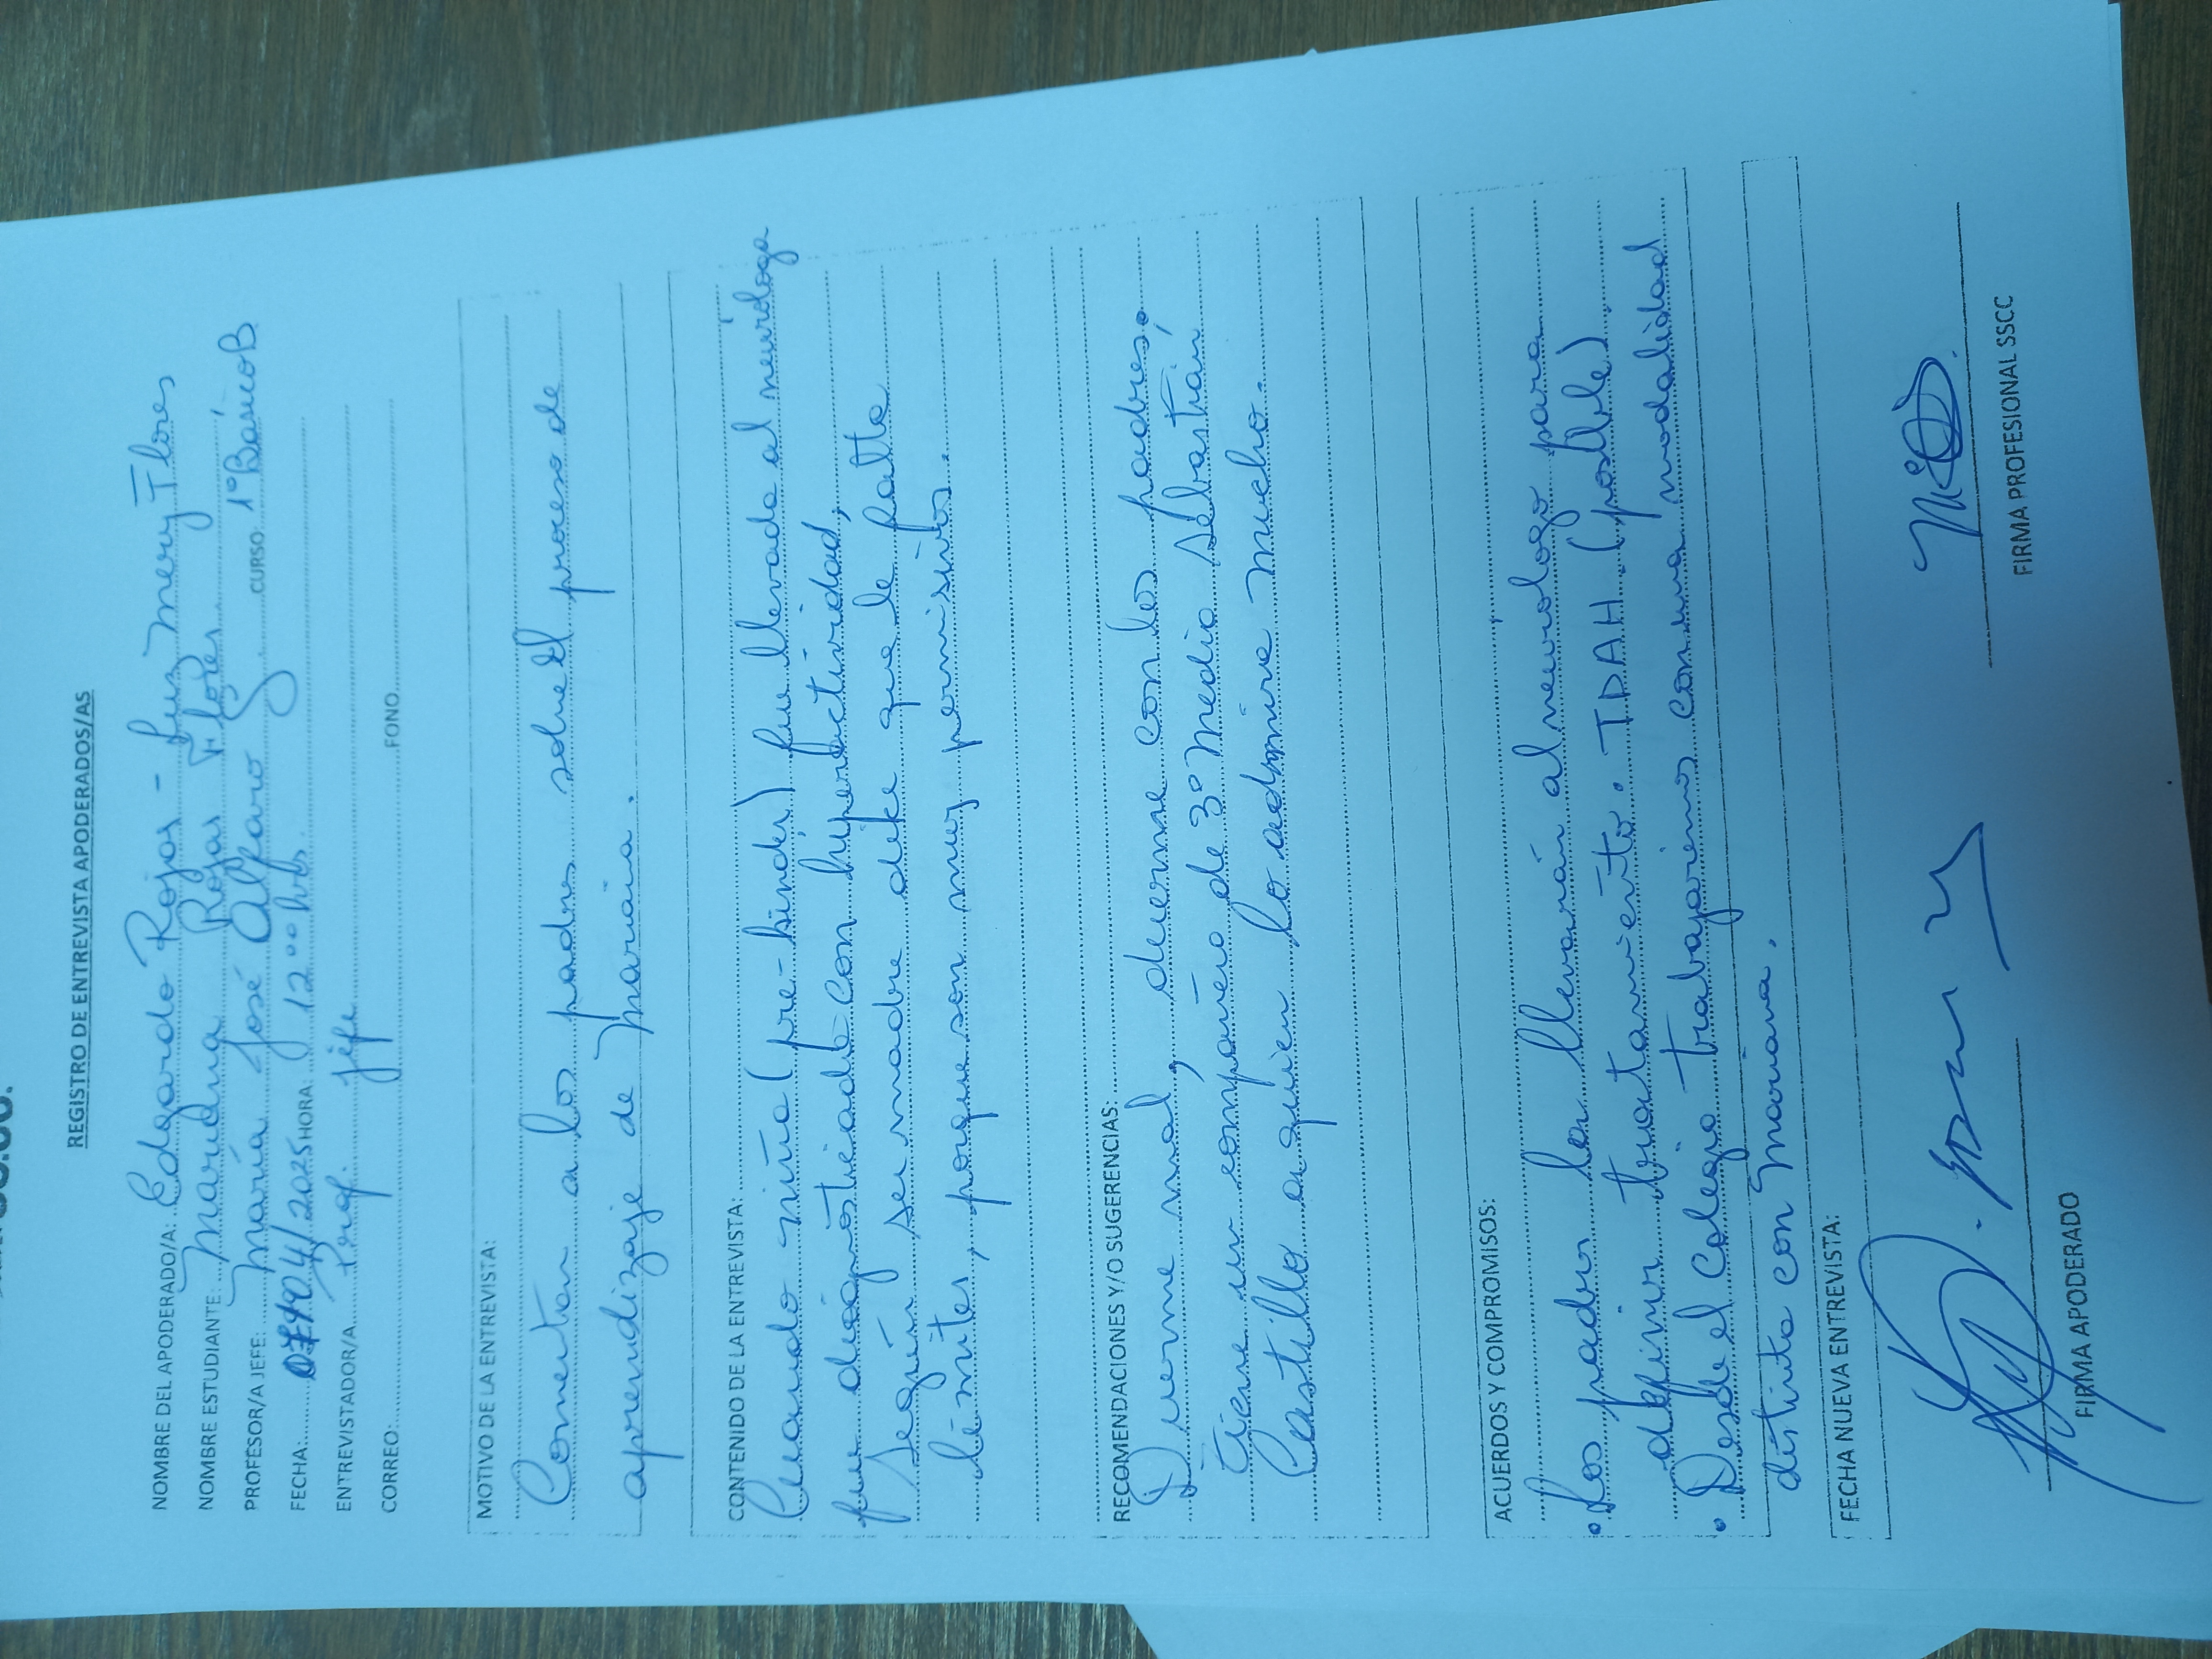 REGISTRO DE ENTREVISTA APODERADOS/AS
NOMBRE DEL APODERADO/A: Edgardo Rojas - Luz Mery Flores
NOMBRE ESTUDIANTE: Mariana Rojas Flores
PROFESOR/A JEFE: María José Alfaro CURSO 1° Básico B
FECHA: 07/04/2025 HORA 12 °° hrs.
ENTREVISTADOR/A Prof. jefe
CORREO: FONO
MOTIVO DE LA ENTREVISTA:
Comentar a los padres sobre el proceso de
aprendizaje de Mariana.
CONTENIDO DE LA ENTREVISTA:
Cuando niña (pre-kinder) fue llevada al neuróloga
fue diagnósticada con hiperactividad,
según su madre dice que le falta
límites, porque son muy permisivos.
RECOMENDACIONES Y/O SUGERENCIAS:
Duerme mal, duerme con los padres,
tiene un compañero de 3° Medio Sebastián
Castillo a quien lo admira mucho.
ACUERDOS Y COMPROMISOS:
• Los padres la llevarán al neurologo para
definir tratamiento. TDAH (posible)
• Desde el Colegio trabajaremos con una modalidad
distinta con Mariana.
FECHA NUEVA ENTREVISTA:
FIRMA APODERADO
FIRMA PROFESIONAL SSCC